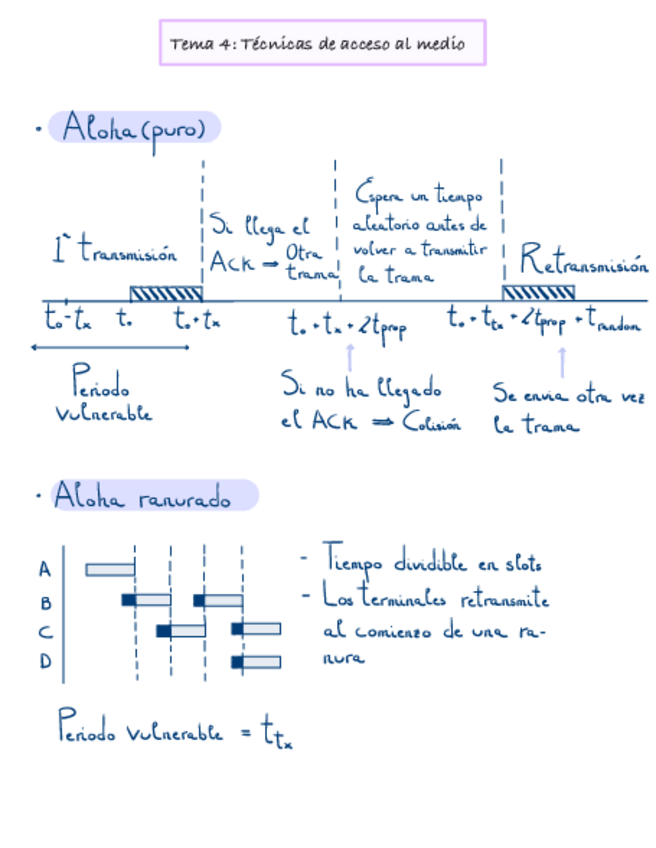 Tema 4: Técnicas de acceso al medio
· Aloha (puro)
1ª transmisión
Si llega el
ACK → Otra
trama
Espera un tiempo
aleatorio antes de
volver a transmitir
la trama
Retransmisión
t₀-tₓ
t₀
t₀+tₓ
t₀+tₓ+2tprop
t₀+ttx+2tprop+trandom
Periodo
vulnerable
Si no ha llegado
el ACK ⇒ Colisión
Se envia otra vez
la trama
· Aloha ranurado
A
B
C
D
- Tiempo dividible en slots
- Los terminales retransmite
al comienzo de una ra-
nura
Periodo vulnerable = ttx